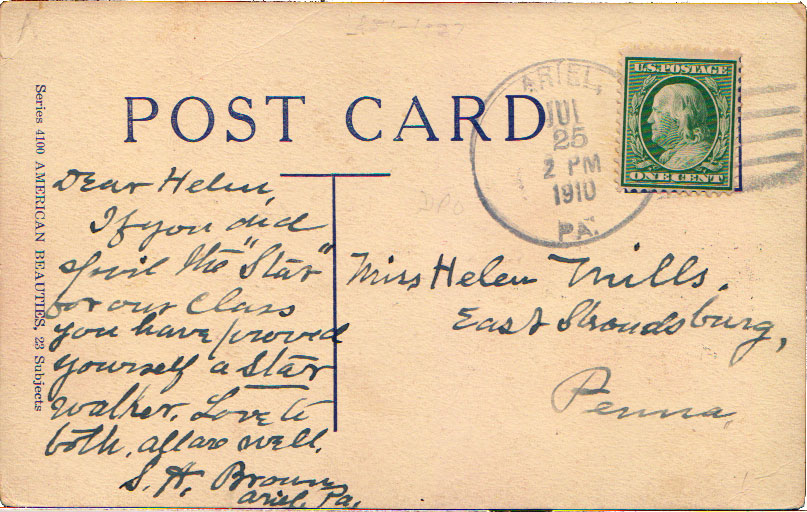 POST CARD
ARIEL,
JUL
25
2 PM
1910
PA.
U.S. POSTAGE
ONE CENT
Series 4100 AMERICAN BEAUTIES, 23 Subjects
Dear Helen,
If you did
spoil the "Star"
for our Class
you have proved
yourself a Star
walker. Love to
both. all are well.
S. A. Brown
Ariel, Pa.
Miss Helen Mills.
East Stroudsburg,
Penna.